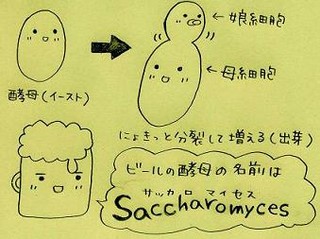 娘細胞
母細胞
酵母(イースト)
にょきっと分裂して増える(出芽)
ビールの酵母の名前は
サッカロ マイセス
Saccharomyces